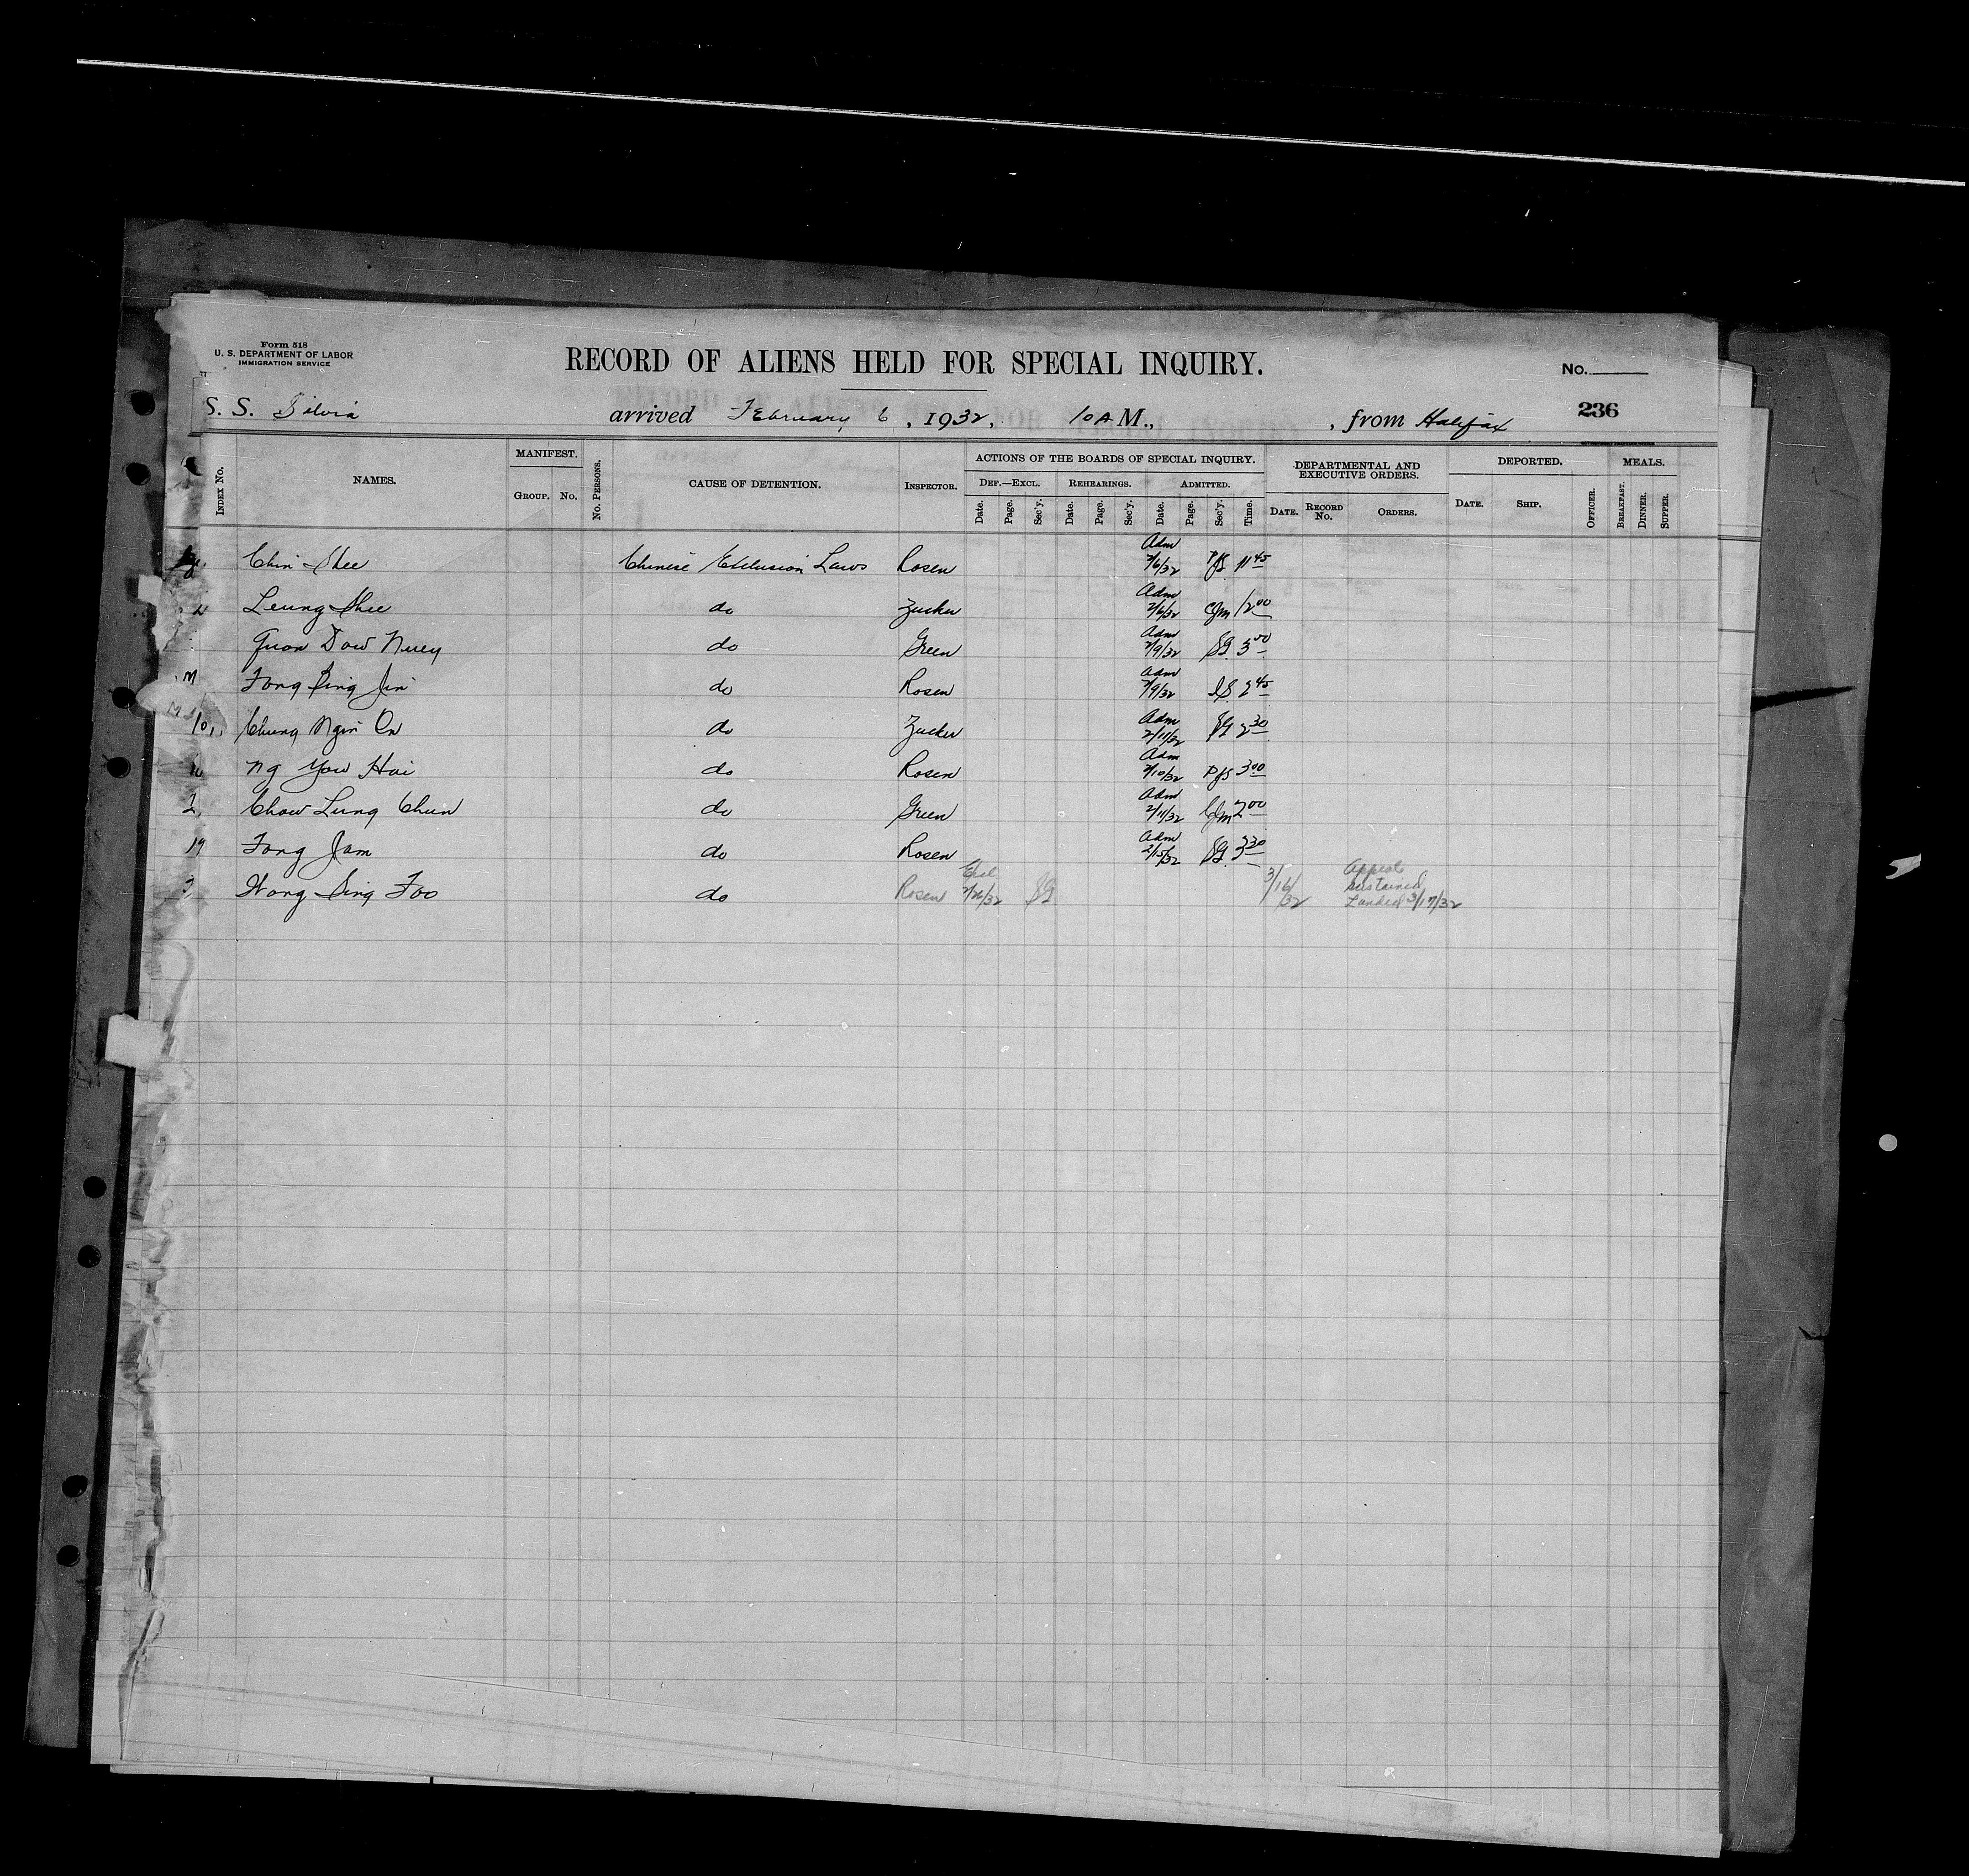 Form 518
U. S. DEPARTMENT OF LABOR
IMMIGRATION SERVICE
RECORD OF ALIENS HELD FOR SPECIAL INQUIRY.
No.
S. S. Silvia arrived February 6, 1932, 10 A M., , from Halifax 236
INDEX NO. NAMES. MANIFEST. GROUP. NO. NO. PERSONS. CAUSE OF DETENTION. INSPECTOR. ACTIONS OF THE BOARDS OF SPECIAL INQUIRY. DEPARTMENTAL AND EXECUTIVE ORDERS. DEPORTED. MEALS.
DEF.—EXCL. REHEARINGS. ADMITTED.
Date. Page. Sec'y. Date. Page. Sec'y. Date. Page. Sec'y. Time. DATE. RECORD No. ORDERS. DATE. SHIP. OFFICER. BREAKFAST. DINNER. SUPPER.
Chin Shee Chinese Exclusion Laws Rosen Adm 2/6/32 PJS 11 45
2 Leung Shee do Zucker Adm 2/6/32 CJM 12 00
Quon Dow Nuey do Green Adm 2/9/32 SG 3 00
Fong Bing Jin do Rosen Adm 2/9/32 IS 2 45
10 Chung Ngin On do Zucker Adm 2/11/32 SG 2 30
10 Ng Yow Hoi do Rosen Adm 2/10/32 PJS 3 00
2 Chow Lung Chun do Green Adm 2/11/32 CJM 2 00
19 Fong Jam do Rosen Adm 2/15/32 SG 3 30
3 Wong Sing Foo do Rosen Excl 2/26/32 SG 3/16/32 Appeal sustained Landed 3/17/32